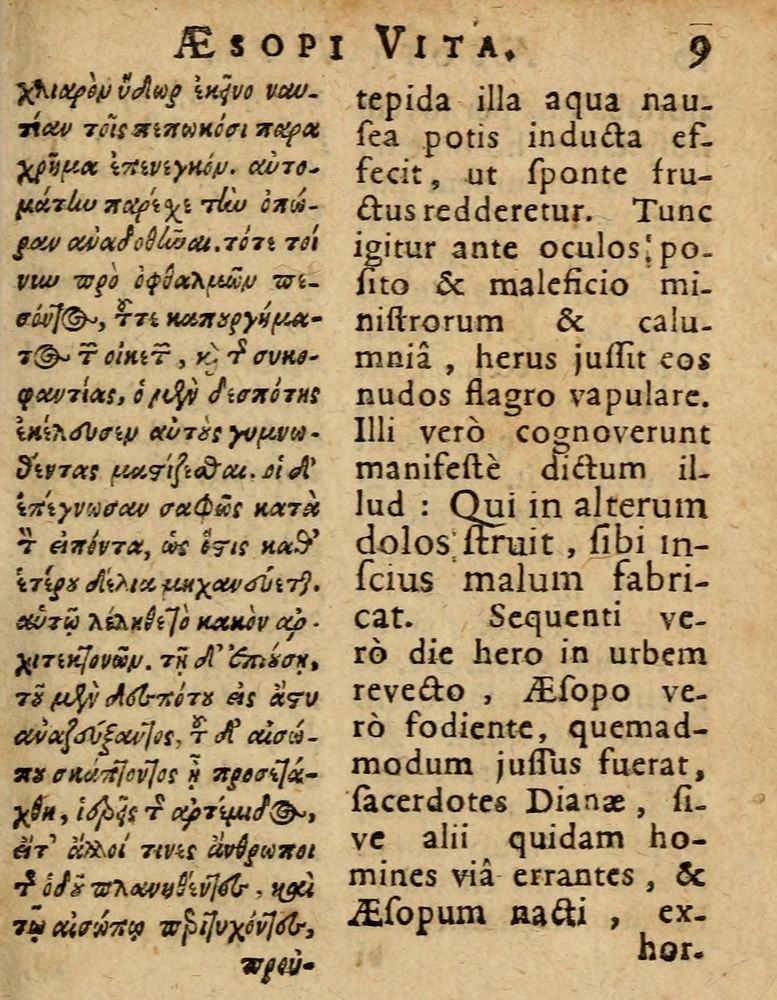 ÆSOPI VITA. 9
χλιαρὸν ὕδωρ ἐκεῖνο ναυ-
τίαν τοῖς πεπωκόσι παρα
χρῆμα ἐπενεγκὸν. αὐτο-
μάτην παρεῖχε τὴν ὀπώ-
ραν ἀναδοθῆναι. τότε τοί
νυν πρὸ ὀφθαλμῶν πε-
σόντος, τοῦτε κακουργήμα-
τος τῶν οἰκετῶν, καὶ τῆς συκο-
φαντίας, ὁ μὲν δεσπότης
ἐκέλευσεν αὐτοὺς γυμνω-
θέντας μαστίζεσθαι. οἱ δ'
ἐπέγνωσαν σαφῶς κατὰ
τὸν εἰπόντα, ὡς ὅστις καθ'
ἑτέρου δόλια μηχανεύεται.
αὑτῷ λέληθε τὸ κακὸν ἀρ-
χιτεκτονῶν. τῇ δ' ἐπιούσῃ,
τοῦ μὲν δεσπότου εἰς ἄστυ
ἀναζεύξαντος, τοῦ δ' αἰσώ-
που σκάπτοντος ᾗ προσετά-
χθη, ἱερεῖς τῆς ἀρτέμιδος,
εἴτ' ἄλλοί τινες ἄνθρωποι
τῆς ὁδοῦ πλανηθέντες, καὶ
τῷ αἰσώπῳ περιτυχόντες,
προὐ-
tepida illa aqua nau-
ſea potis inducta ef-
fecit, ut ſponte fru-
ctus redderetur. Tunc
igitur ante oculos po-
ſito & maleficio mi-
niſtrorum & calu-
mniâ, herus juſſit eos
nudos flagro vapulare.
Illi verò cognoverunt
manifeſtè dictum il-
lud : Qui in alterum
dolos ſtruit, ſibi in-
ſcius malum fabri-
cat. Sequenti ve-
rò die hero in urbem
revecto, Æſopo ve-
rò fodiente, quemad-
modum juſſus fuerat,
ſacerdotes Dianæ, ſi-
ve alii quidam ho-
mines viâ errantes, &
Æſopum nacti, ex-
hor-